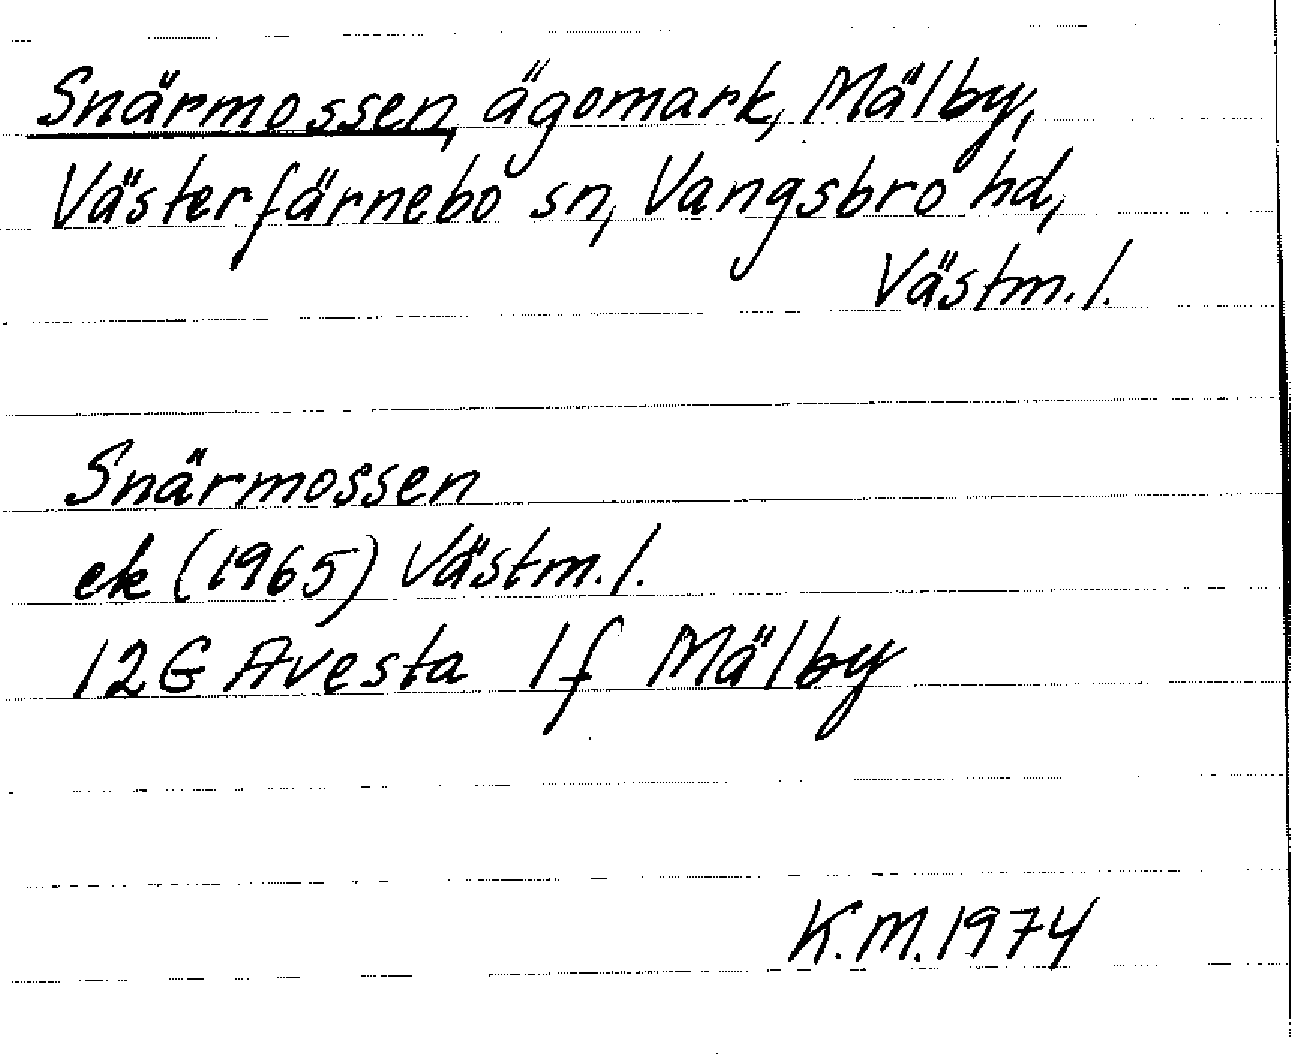 Snärmossen, ägomark, Mälby,
Västerfärnebo sn, Vangsbro hd,
Västm. l.
Snärmossen
ek (1965) Västm. l.
12G Avesta 1f Mälby
K.M. 1974